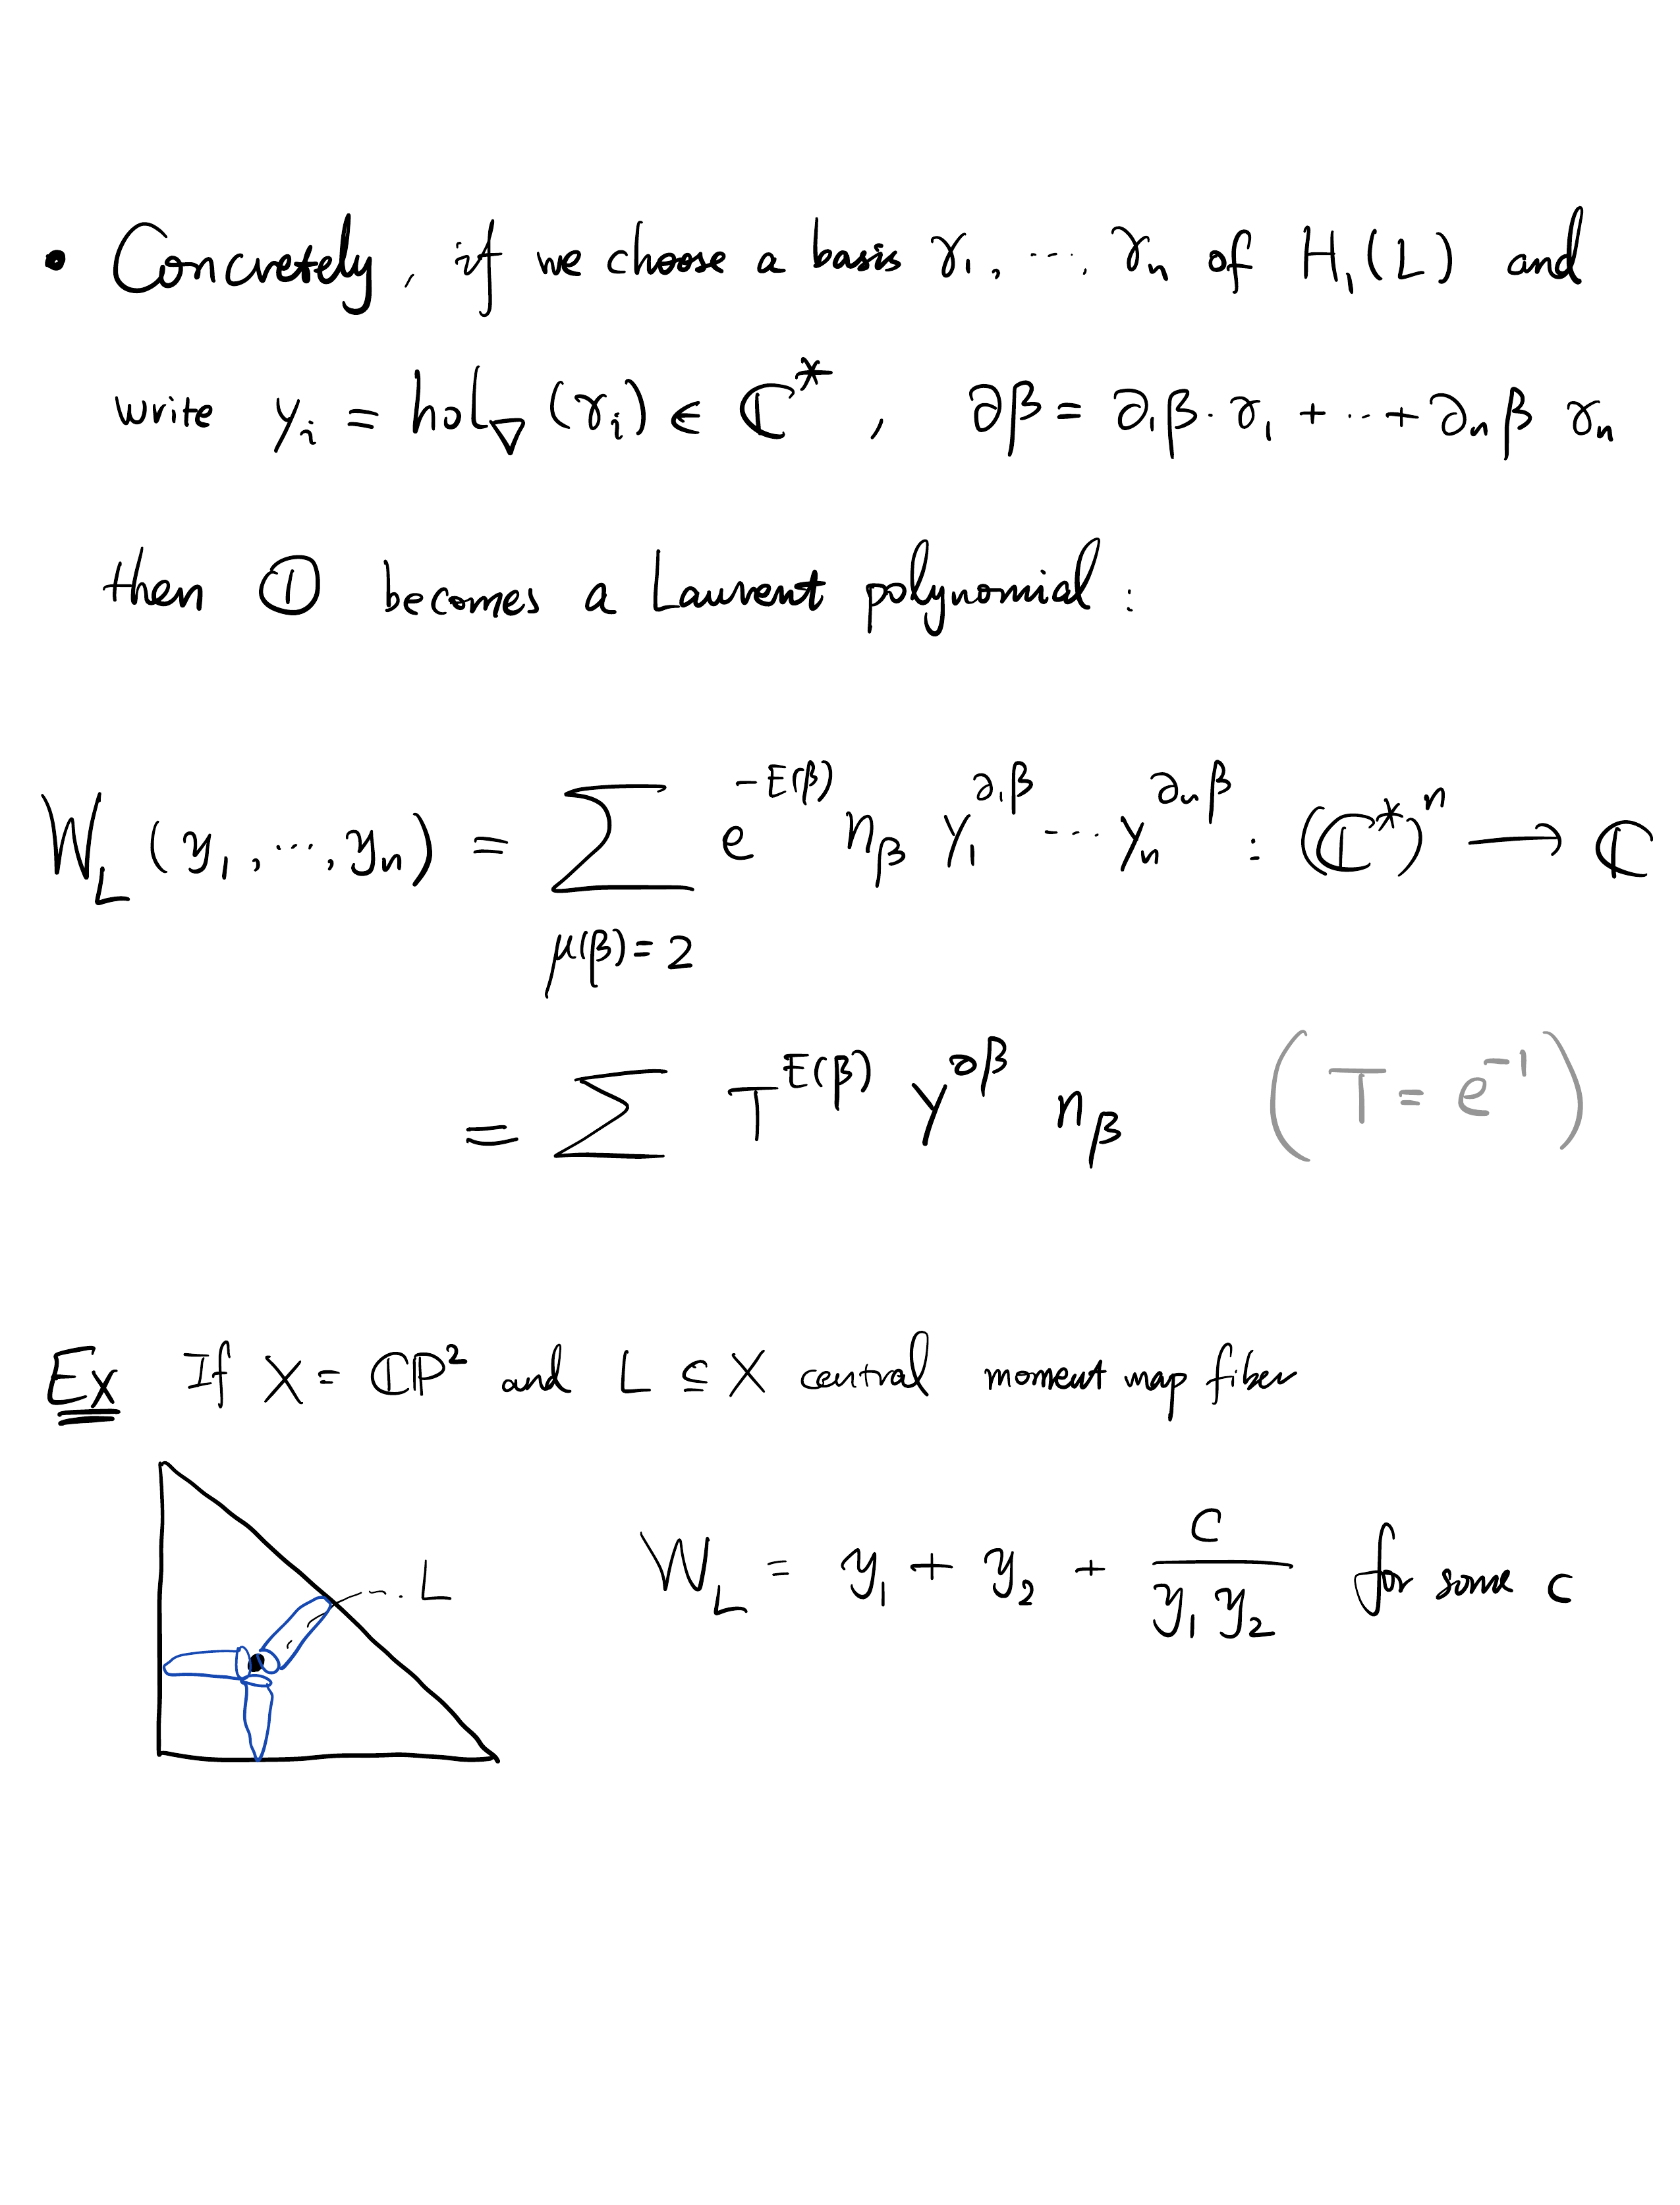 • Concretely, if we choose a basis γ₁, ..., γₙ of H₁(L) and
write yᵢ = hol_∇ (γᵢ) ∈ ℂ* , ∂β = ∂₁β · γ₁ + ··· + ∂ₙβ γₙ
then ① becomes a Laurent polynomial :
W_L (y₁, ..., yₙ) = ∑_{μ(β)=2} e^{-E(β)} n_β y₁^{∂₁β} ··· yₙ^{∂ₙβ} : (ℂ*)ⁿ ⟶ ℂ
= ∑ T^{E(β)} y^{∂β} n_β ( T = e⁻¹ )
Ex If X = ℂP² and L ⊆ X central moment map fiber
L
W_L = y₁ + y₂ + c/(y₁ y₂) for some c